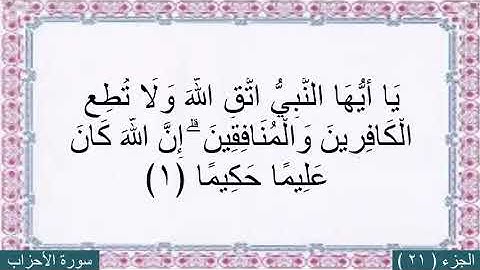 يَا أَيُّهَا النَّبِيُّ اتَّقِ اللَّهَ وَلَا تُطِعِ
الْكَافِرِينَ وَالْمُنَافِقِينَ ۗ إِنَّ اللَّهَ كَانَ
عَلِيمًا حَكِيمًا (١)
الجزء ( ٢١ )
سورة الأحزاب